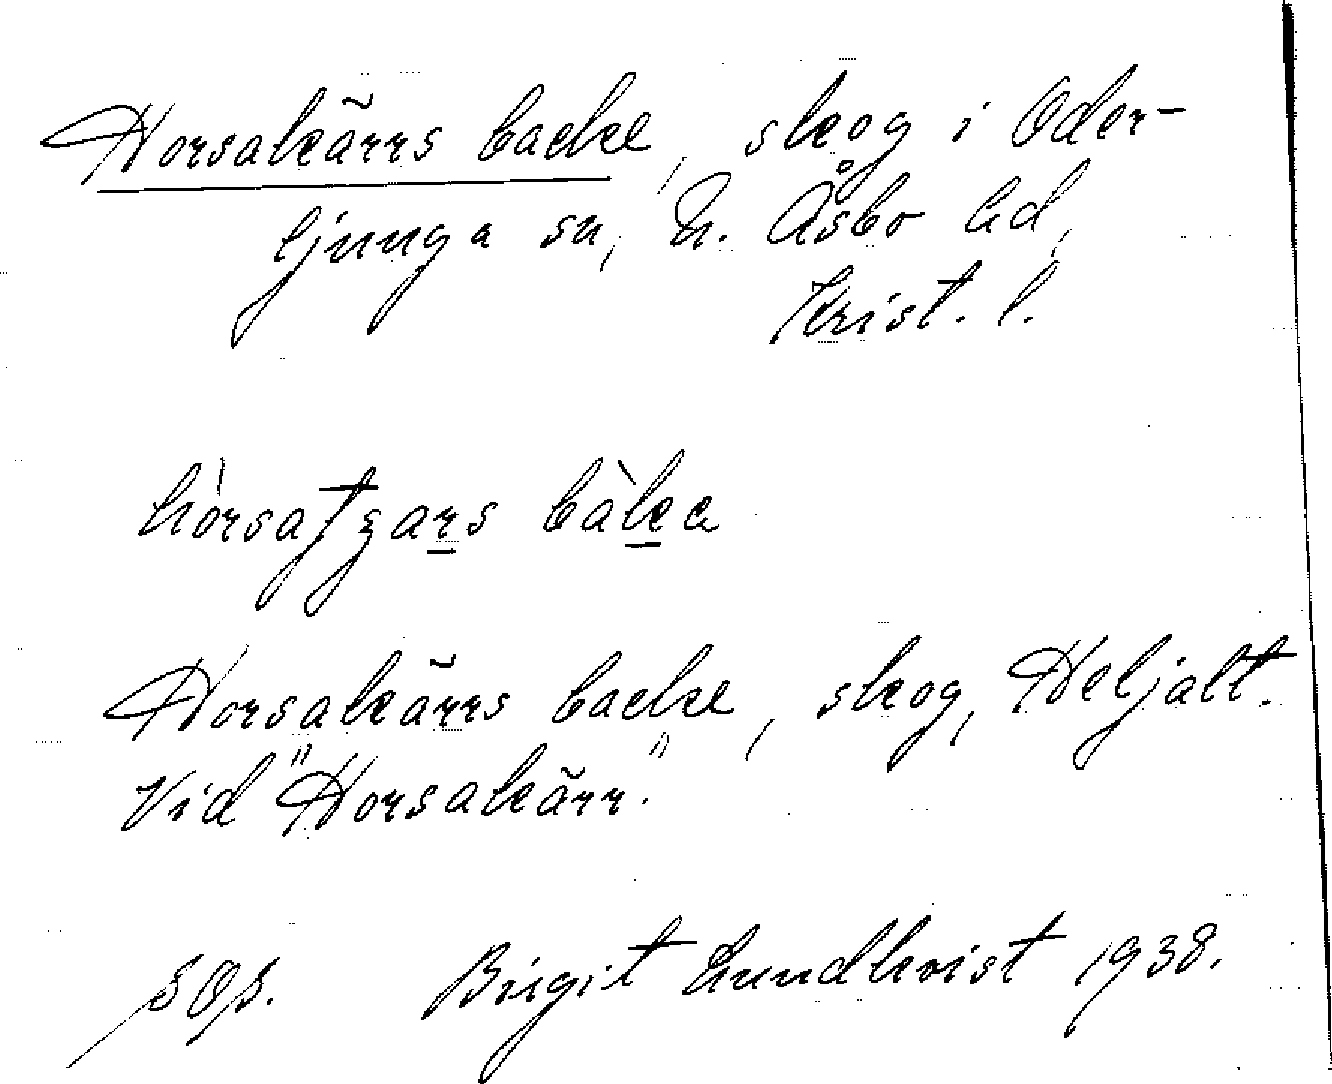 Horsakärrs backe, skog i Oder-
ljunga sn, N. Åsbo hd,
Krist. l.
Horsakärrs backe, skog, Heljalt.
Vid "Horsakärr."
Birgit Lundkvist 1938.